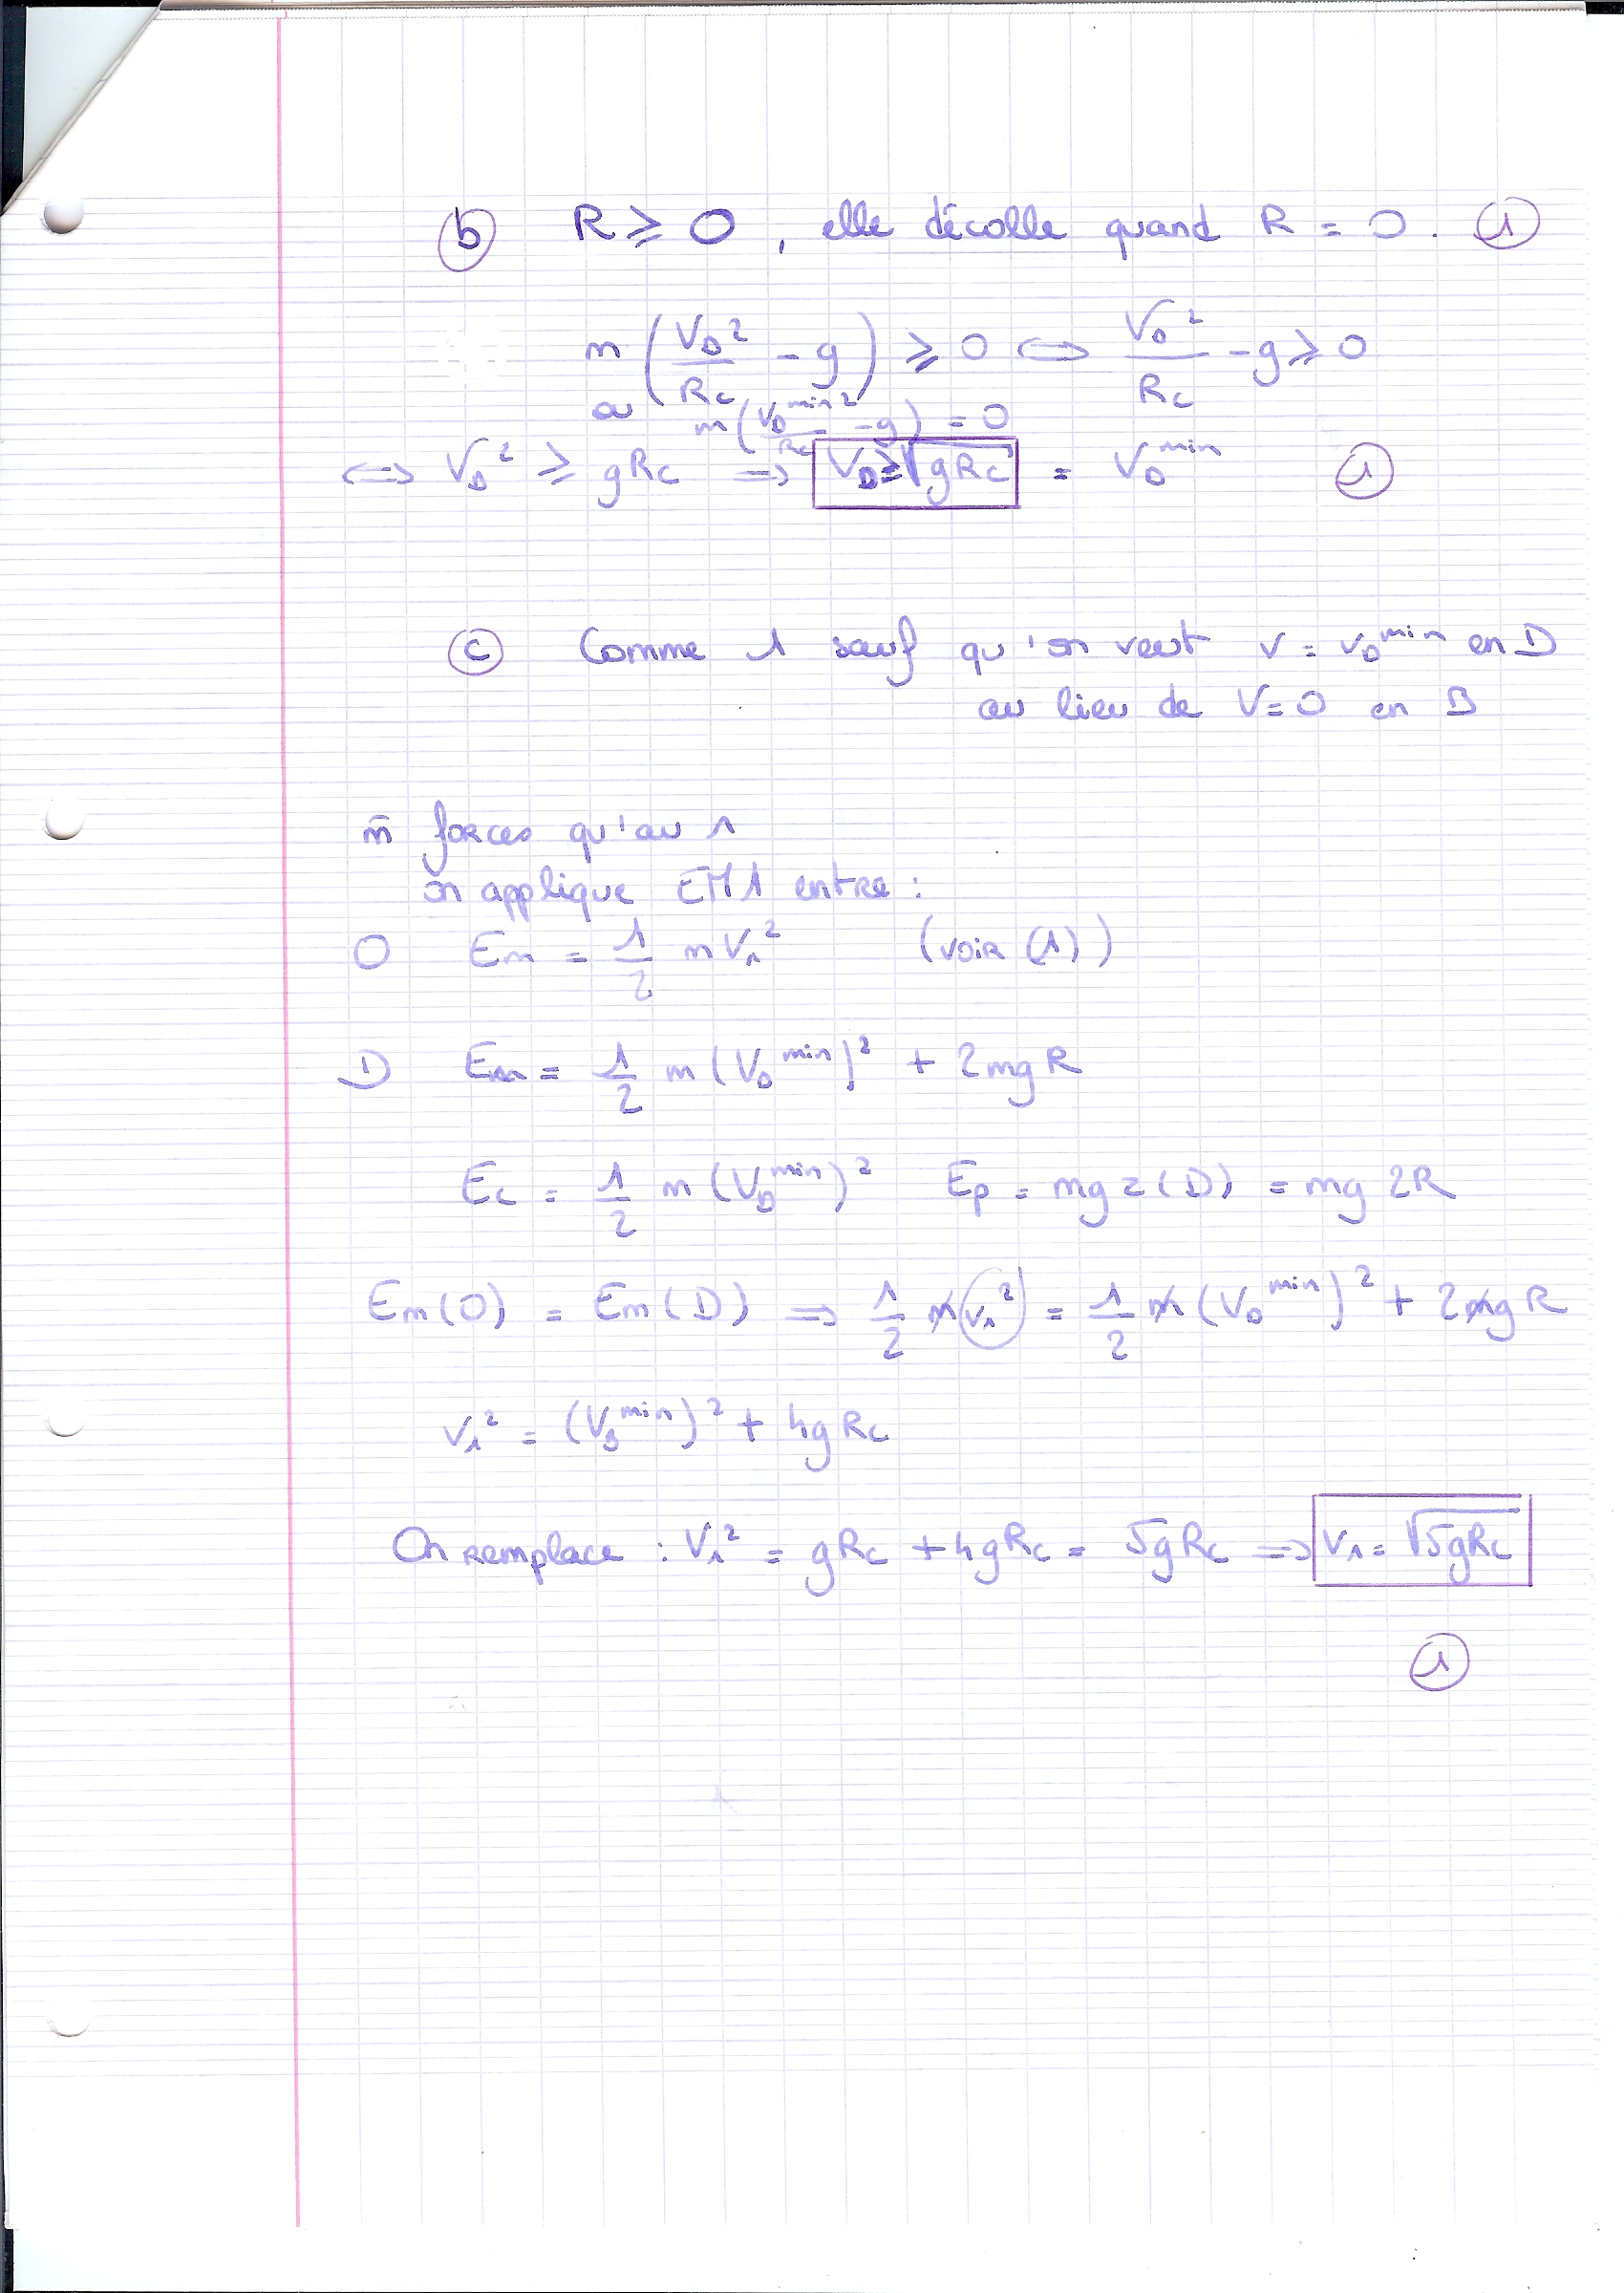 ⓑ R ⩾ 0, elle décolle quand R = 0. ①
m (V_D²/R_c - g) ⩾ 0 ⟺ V_D²/R_c - g ⩾ 0
ou m(V_D^min²/R_c - g) = 0
⟺ V_D² ⩾ gR_c ⟹ V_D ⩾ √gR_c = V_D^min ①
ⓒ Comme 1 sauf qu'on veut v = v_D^min en D
au lieu de V=0 en B
m̄ forces qu'au 1
on applique EM1 entre :
O Em = 1/2 m V₁² (voir (1))
D Em = 1/2 m (V_D^min)² + 2mgR
Ec = 1/2 m (V_D^min)² Ep = mg z(D) = mg 2R
Em(O) = Em(D) ⟹ 1/2 m(v₁²) = 1/2 m (V_D^min)² + 2mgR
V₁² = (V_D^min)² + 4gR_c
On remplace : V₁² = gR_c + 4gR_c = 5gR_c ⟹ V₁ = √5gR_c
①